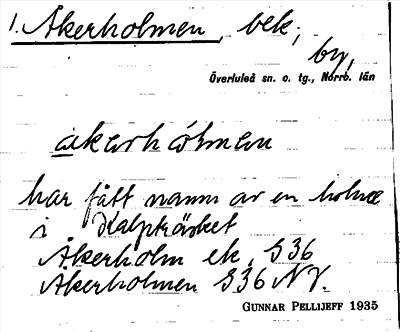 1. Åkerholmen, bek.,
by,
Överluleå sn. o. tg., Norrb. län
akerhólmen
har fått namn av en holme
i Kalpträsket
Åkerholm ek. S36
Åkerholmen S36 NV.
GUNNAR PELLIJEFF 1935